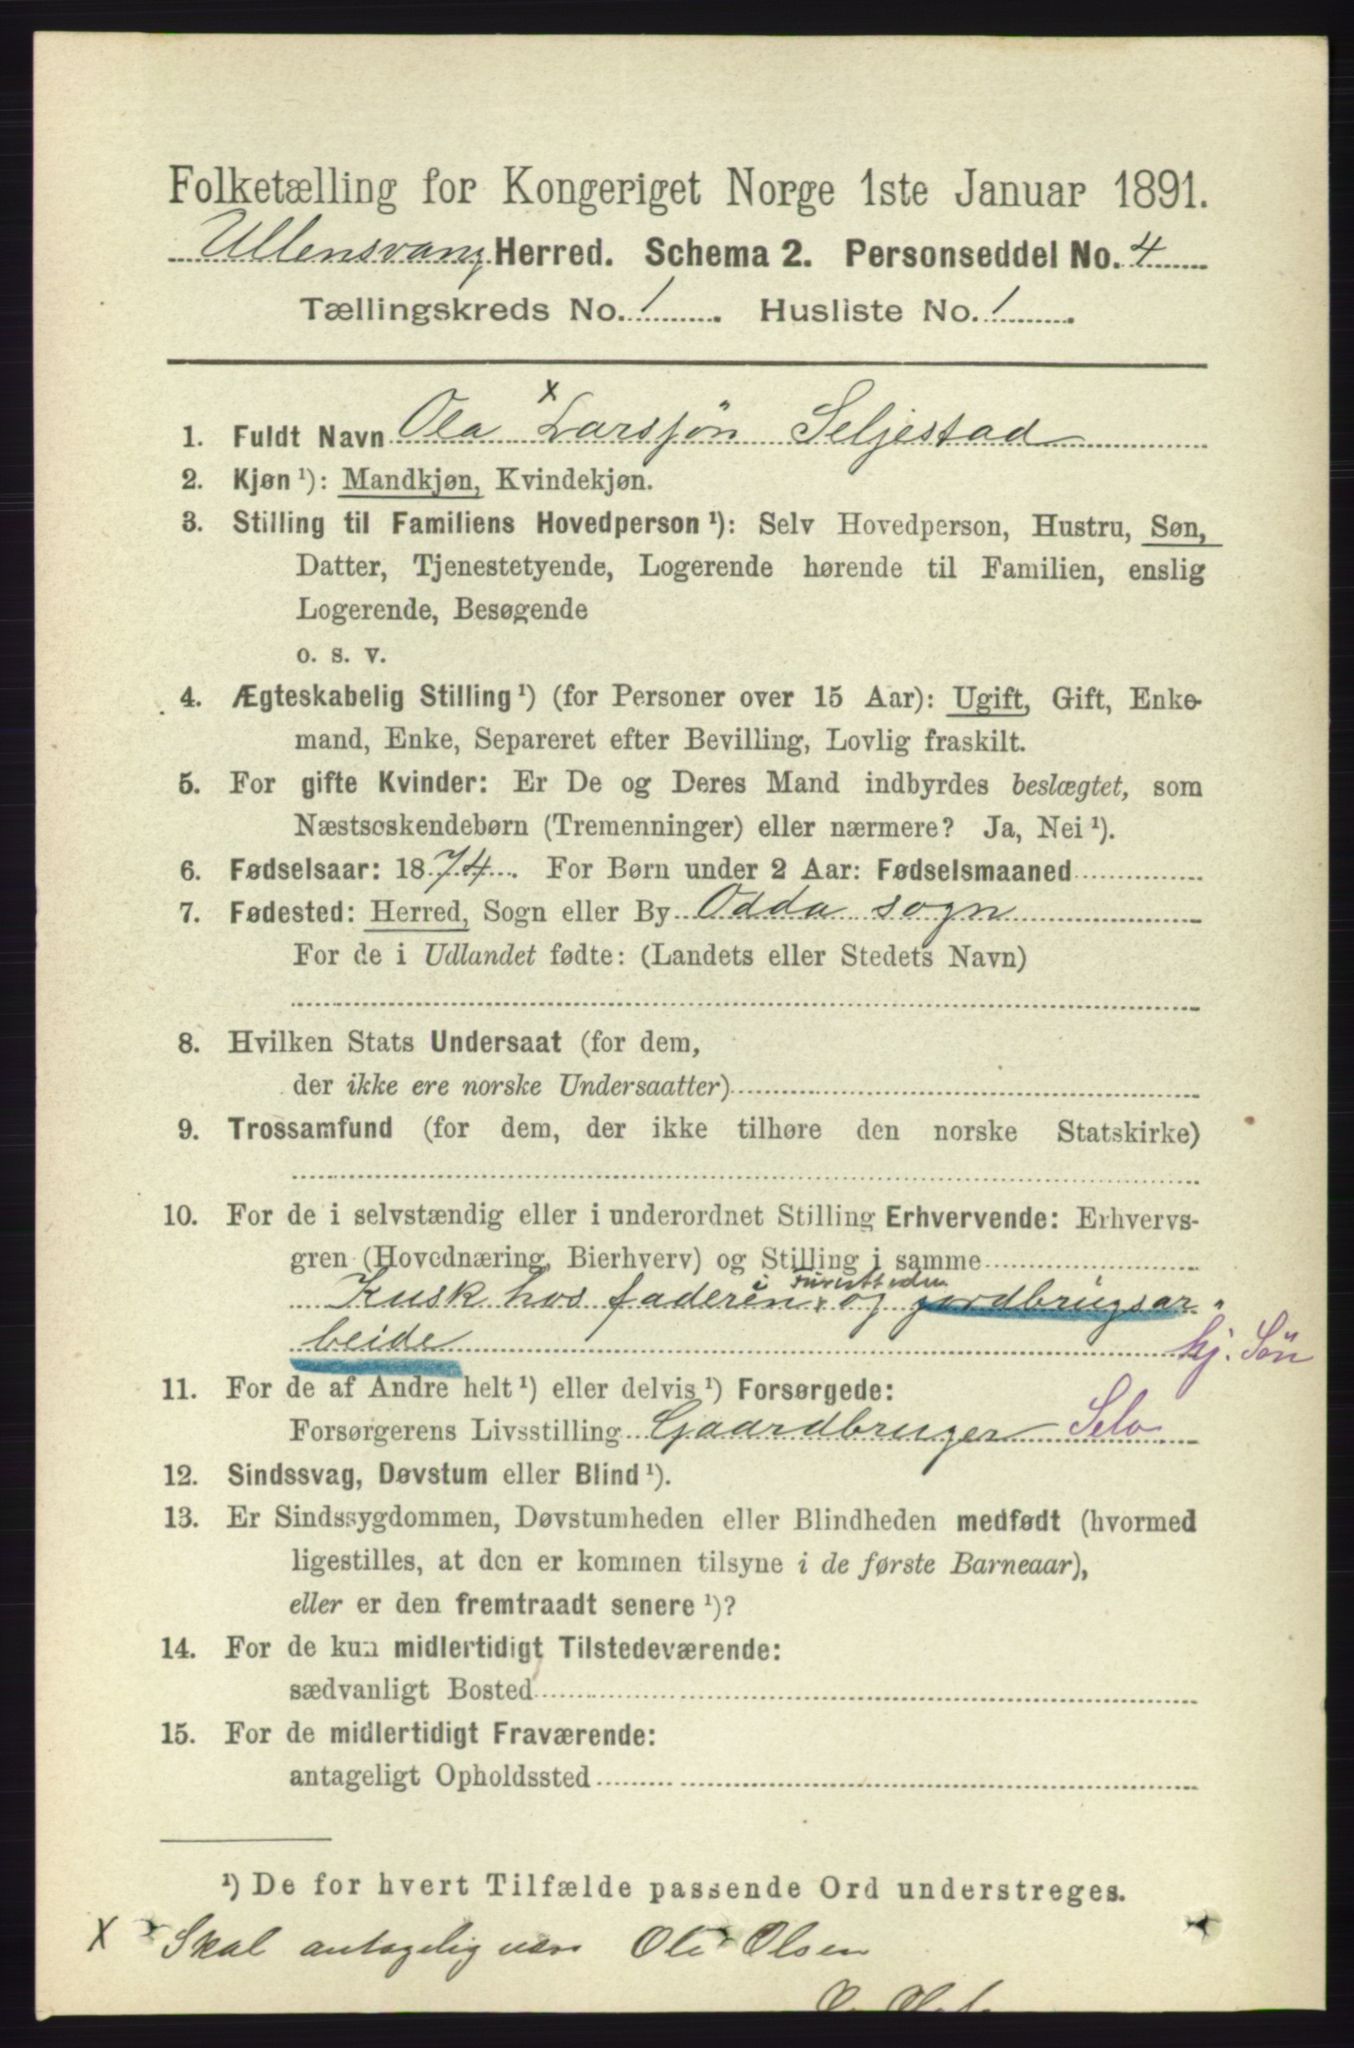 Folketælling for Kongeriget Norge 1ste Januar 1891.
Ullensvang Herred. Schema 2. Personseddel No. 4
Tællingskreds No. 1. Husliste No. 1.
x
1. Fuldt Navn Ola Larsjøn Seljestad
2. Kjøn ¹): Mandkjøn, Kvindekjøn.
3. Stilling til Familiens Hovedperson ¹): Selv Hovedperson, Hustru, Søn,
Datter, Tjenestetyende, Logerende hørende til Familien, enslig
Logerende, Besøgende
o. s. v.
4. Ægteskabelig Stilling ¹) (for Personer over 15 Aar): Ugift, Gift, Enke-
mand, Enke, Separeret efter Bevilling, Lovlig fraskilt.
5. For gifte Kvinder: Er De og Deres Mand indbyrdes beslægtet, som
Næstsøskendebørn (Tremenninger) eller nærmere? Ja, Nei ¹).
6. Fødselsaar: 1874. For Børn under 2 Aar: Fødselsmaaned
7. Fødested: Herred, Sogn eller By Odda sogn
For de i Udlandet fødte: (Landets eller Stedets Navn)
8. Hvilken Stats Undersaat (for dem,
der ikke ere norske Undersaatter)
9. Trossamfund (for dem, der ikke tilhøre den norske Statskirke)
10. For de i selvstændig eller i underordnet Stilling Erhvervende: Erhvervs-
gren (Hovednæring, Bierhverv) og Stilling i samme
i Turisttiden
Kusk hos faderen, og jordbrugsar-
beide hj. Søn
11. For de af Andre helt ¹) eller delvis ¹) Forsørgede:
Forsørgerens Livsstilling Gaardbruger Selv
12. Sindssvag, Døvstum eller Blind ¹).
13. Er Sindssygdommen, Døvstumheden eller Blindheden medfødt (hvormed
ligestilles, at den er kommen tilsyne i de første Barneaar),
eller er den fremtraadt senere ¹)?
14. For de kun midlertidigt Tilstedeværende:
sædvanligt Bosted
15. For de midlertidigt Fraværende:
antageligt Opholdssted
¹) De for hvert Tilfælde passende Ord understreges.
X Skal antagelig være Ole Olsen